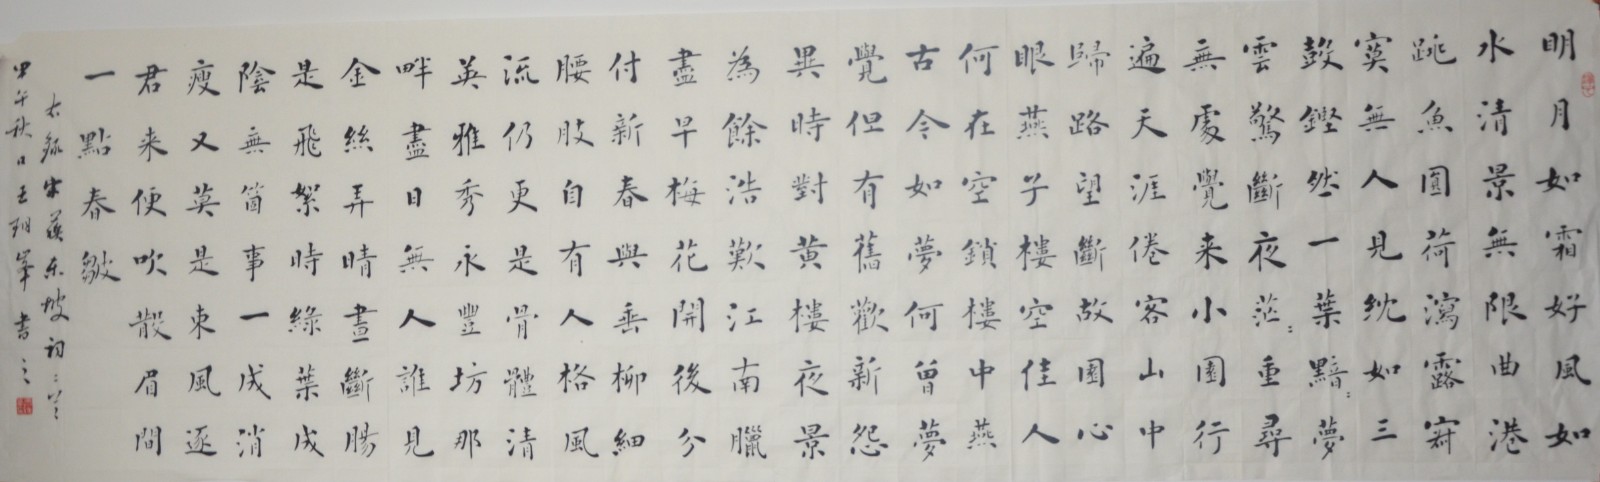 明月如霜好風如
水清景無限曲港
跳魚圓荷瀉露寂
寞無人見紞如三
鼓鏗然一葉黯〻夢
雲驚斷夜茫〻重尋
無處覺来小園行
遍天涯倦客山中
歸路望斷故園心
眼燕子樓空佳人
何在空鎖樓中燕
古今如夢何曾夢
覺但有舊歡新怨
異時對黄樓夜景
為餘浩歎江南臘
盡早梅花開後分
付新春與垂柳細
腰肢自有人格風
流仍更是骨體清
英雅秀永豐坊那
畔盡日無人誰見
金絲弄晴晝斷腸
是飛絮時綠葉成
陰無箇事一成消
瘦又莫是東風逐
君来便吹散眉間
一點春皺
右錄宋蘇東坡詞二首
甲午秋日王書之